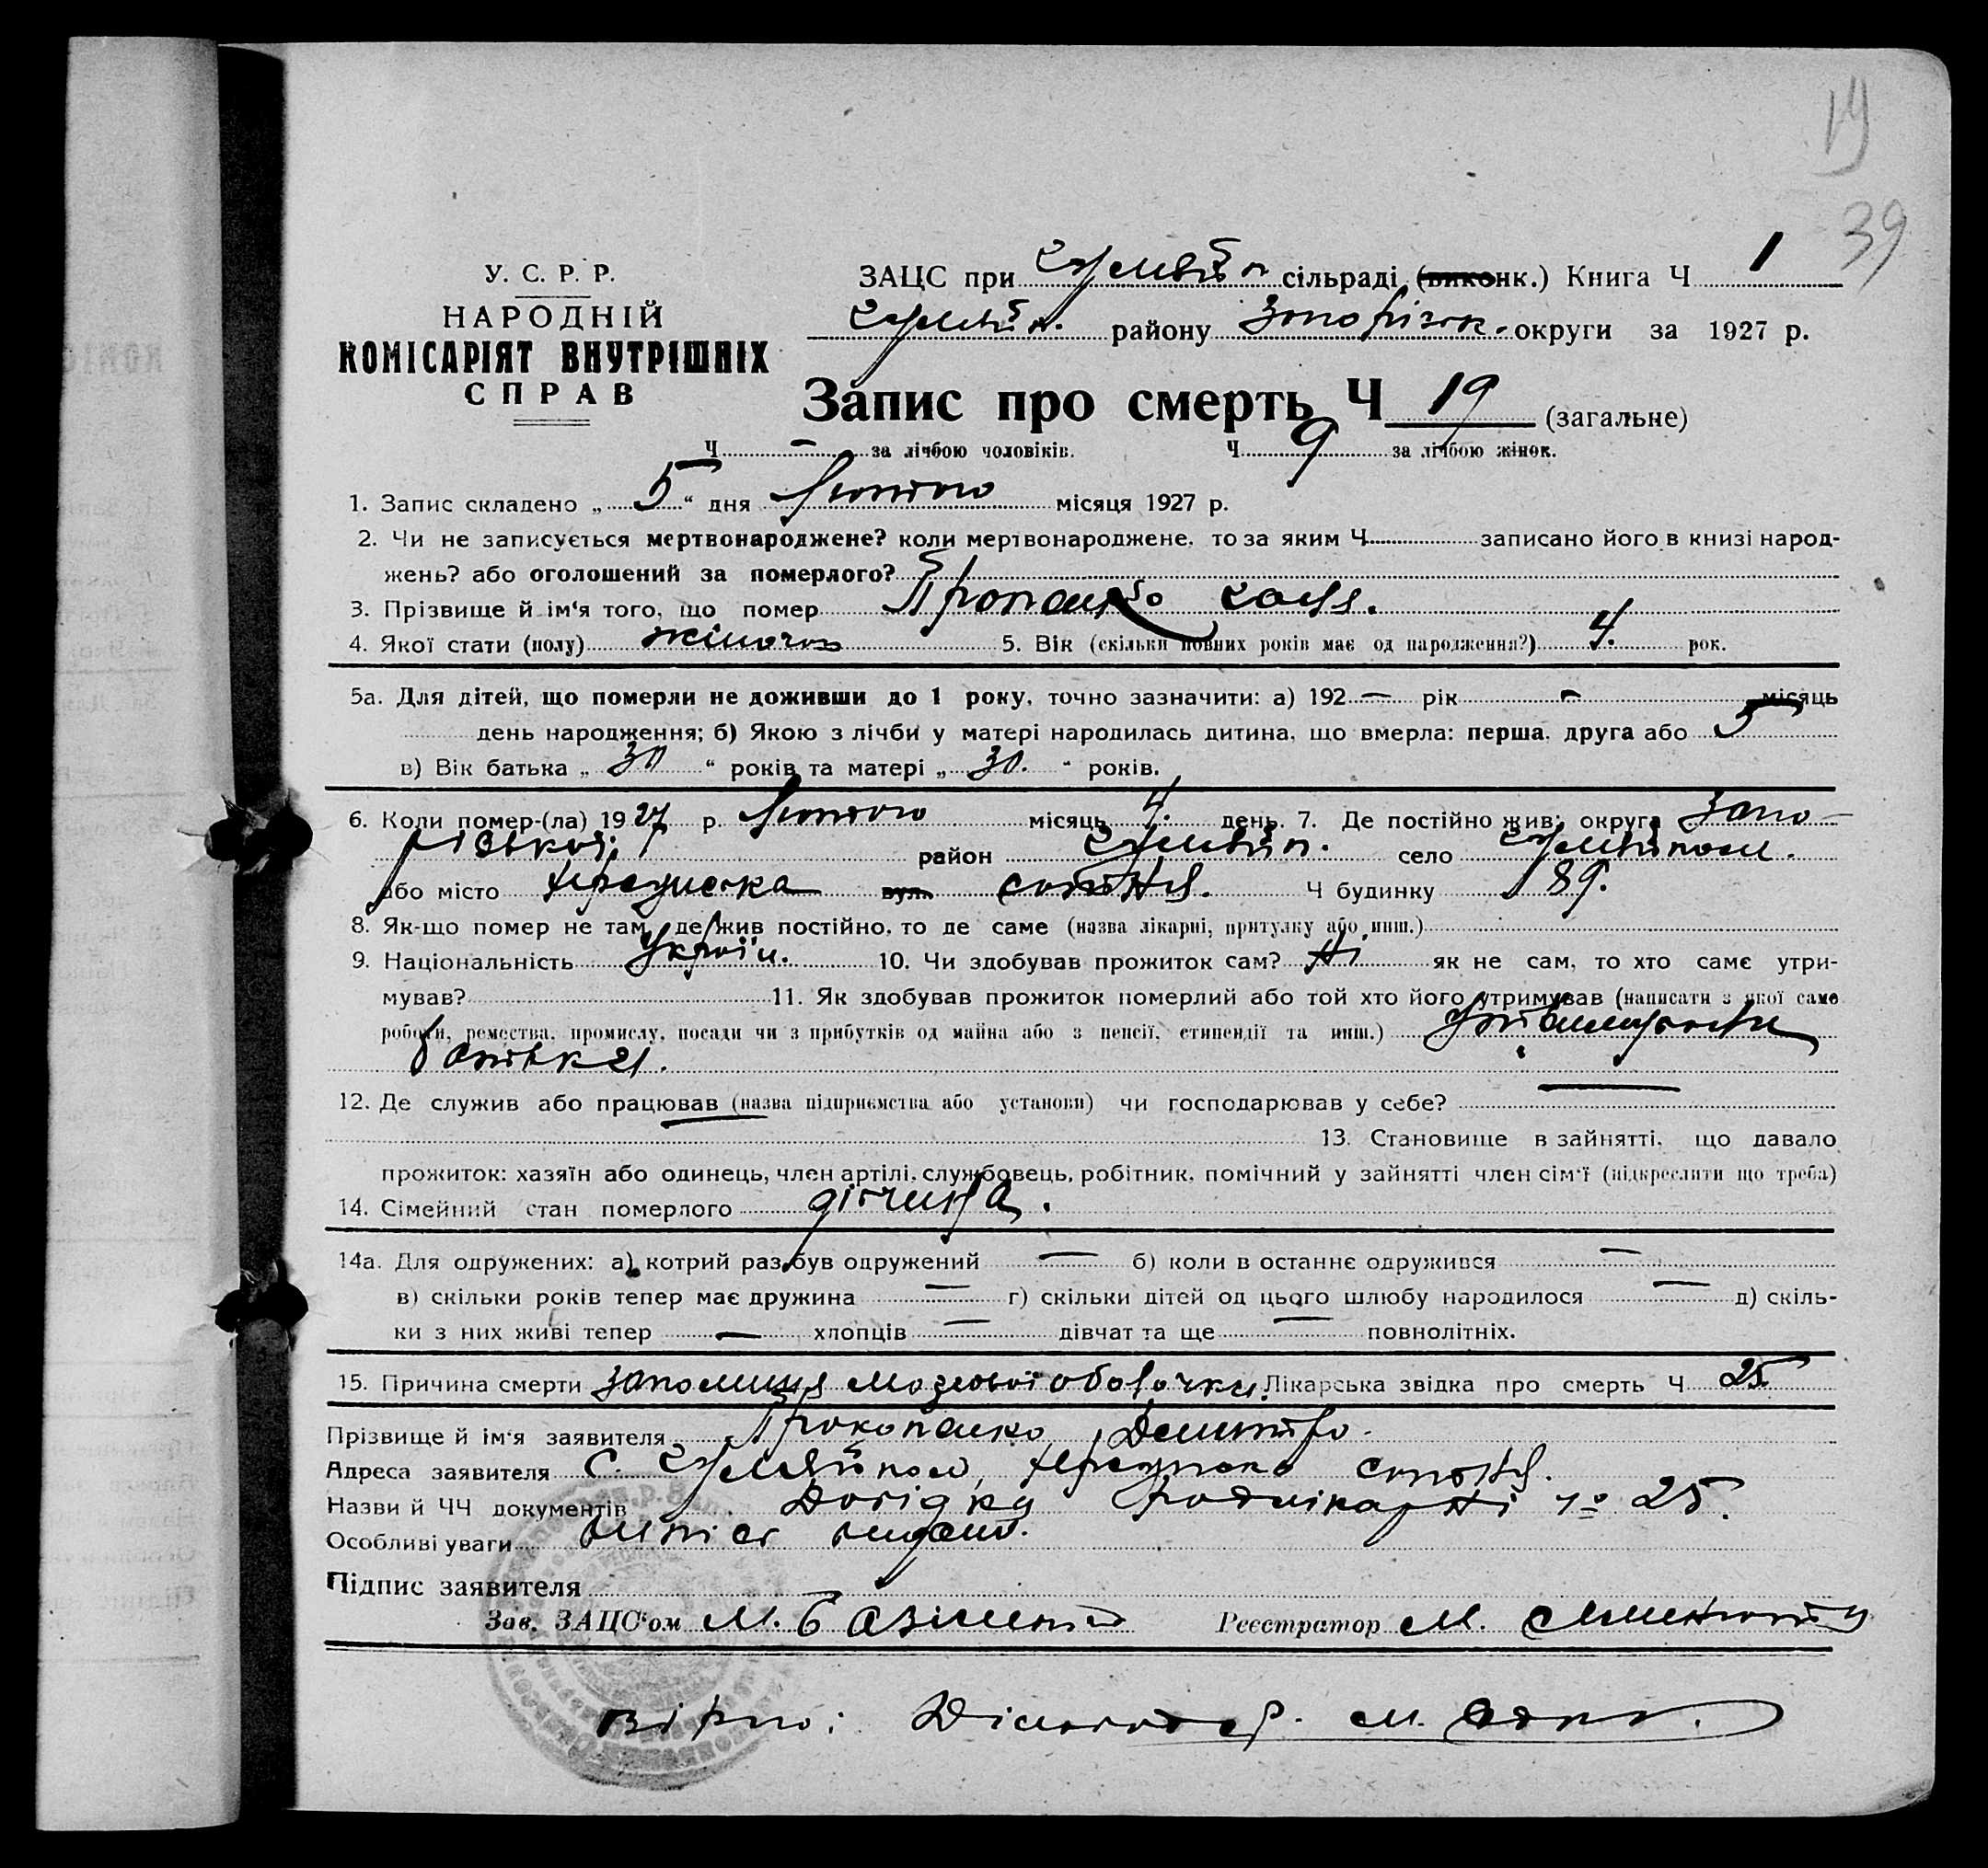 19
39
У. С. Р. Р.
НАРОДНІЙ
КОМІСАРІЯТ ВНУТРІШНІХ
СПРАВ
ЗАЦС при сільраді (виконк.) Книга Ч 1
району Запоріжк. округи за 1927 р.
Запис про смерть Ч 19 (загальне)
Ч — за лічбою чоловіків. Ч 9 за лічбою жінок.
1. Запис складено „ 5 “ дня Лютого місяця 1927 р.
2. Чи не записується мертвонароджене? коли мертвонароджене, то за яким Ч записано його в книзі народ-
жень? або оголошений за померлого?
3. Прізвище й ім'я того, що помер
4. Якої стати (полу) жіночої 5. Вік (скільки повних років має од народження?) 4. рок.
5а. Для дітей, що померли не доживши до 1 року, точно зазначити: а) 192 — рік — місяць
день народження; б) Якою з лічби у матері народилась дитина, що вмерла: перша, друга або 5
в) Вік батька „ 30 “ років та матері „ 30. “ років.
6. Коли помер-(ла) 1927 р. Лютого місяць 4. день. 7. Де постійно жив: округа Запо-
ріської район село
або місто вул. сотня. Ч будинку 189.
8. Як-що помер не там, де жив постійно, то де саме (назва лікарні, притулку або инш.)
9. Національність Україн. 10. Чи здобував прожиток сам? Ні як не сам, то хто саме утри-
мував? 11. Як здобував прожиток померлий або той хто його утримував (написати з якої саме
роботи, ремества, промислу, посади чи з прибутків од майна або з пенсії, стипендії та инш.)
батька.
12. Де служив або працював (назва підприємства або установи) чи господарював у себе? —
13. Становище в зайнятті, що давало
прожиток: хазяїн або одинець, член артілі, службовець, робітник, помічний у зайнятті член сім'ї (підкреслити що треба)
14. Сімейний стан померлого дівчина.
14а. Для одружених: а) котрий раз був одружений — б) коли в останнє одружився —
в) скільки років тепер має дружина — г) скільки дітей од цього шлюбу народилося — д) скіль-
ки з них живі тепер — хлопців — дівчат та ще — повнолітніх.
15. Причина смерти запалення мозгової оболочки. Лікарська звідка про смерть Ч 25
Прізвище й ім'я заявителя Прокопенко Дмитро.
Адреса заявителя с. сотня.
Назви й ЧЧ документів Довідка № 25.
Особливі уваги витіс видано.
Підпис заявителя
Зав. ЗАЦС'ом М. Реєстратор М.
Вірно: Діловод М.